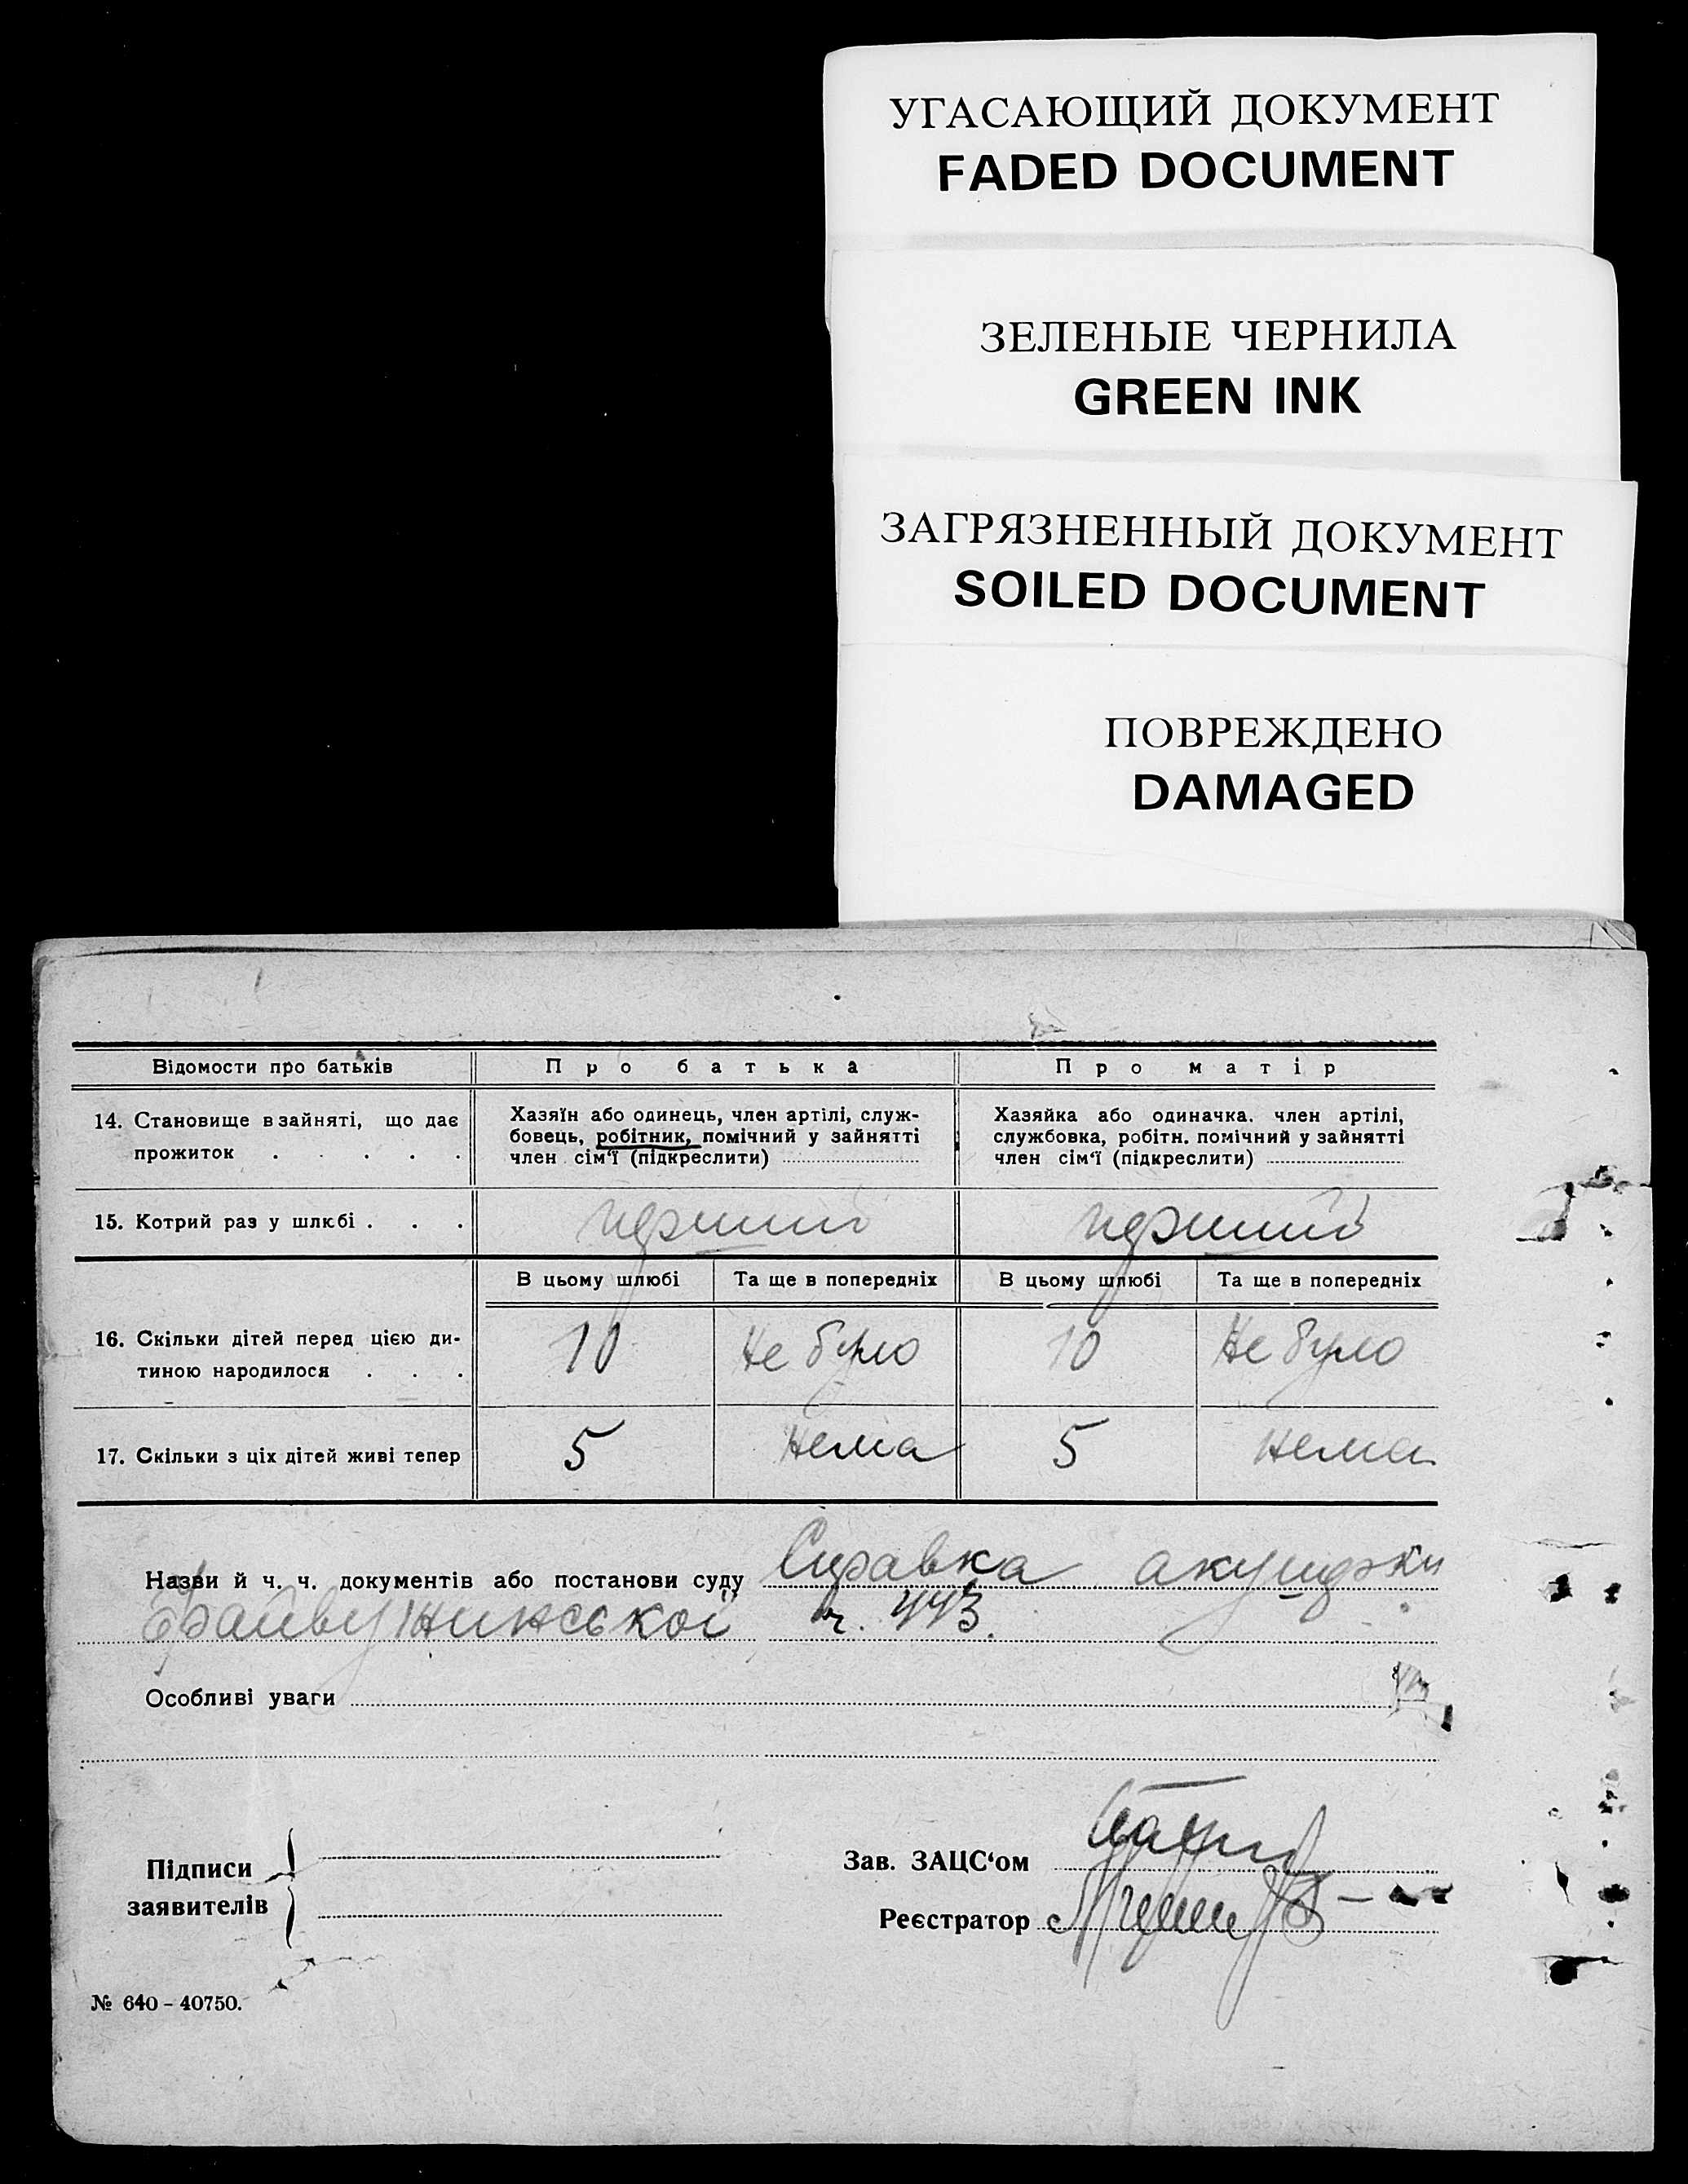 УГАСАЮЩИЙ ДОКУМЕНТ
FADED DOCUMENT
ЗЕЛЕНЫЕ ЧЕРНИЛА
GREEN INK
ЗАГРЯЗНЕННЫЙ ДОКУМЕНТ
SOILED DOCUMENT
ПОВРЕЖДЕНО
DAMAGED
Відомости про батьків
Про батька
Про матір
14. Становище в зайняті, що дає
прожиток . . . . .
Хазяїн або одинець, член артілі, служ-
бовець, робітник, помічний у зайнятті
член сім‘ї (підкреслити)
Хазяйка або одиначка. член артілі,
службовка, робітн. помічний у зайнятті
член сім‘ї (підкреслити)
15. Котрий раз у шлюбі . . .
перший
перший
В цьому шлюбі
Та ще в попередніх
В цьому шлюбі
Та ще в попередніх
16. Скільки дітей перед цією ди-
тиною народилося . . .
10
Не було
10
Не було
17. Скільки з ціх дітей живі тепер
5
нема
5
нема
Назви й ч. ч. документів або постанови суду Справка акушерки
ч. 443.
Особливі уваги
Підписи
заявителів
Зав. ЗАЦС‘ом
Реєстратор
№ 640 - 40750.